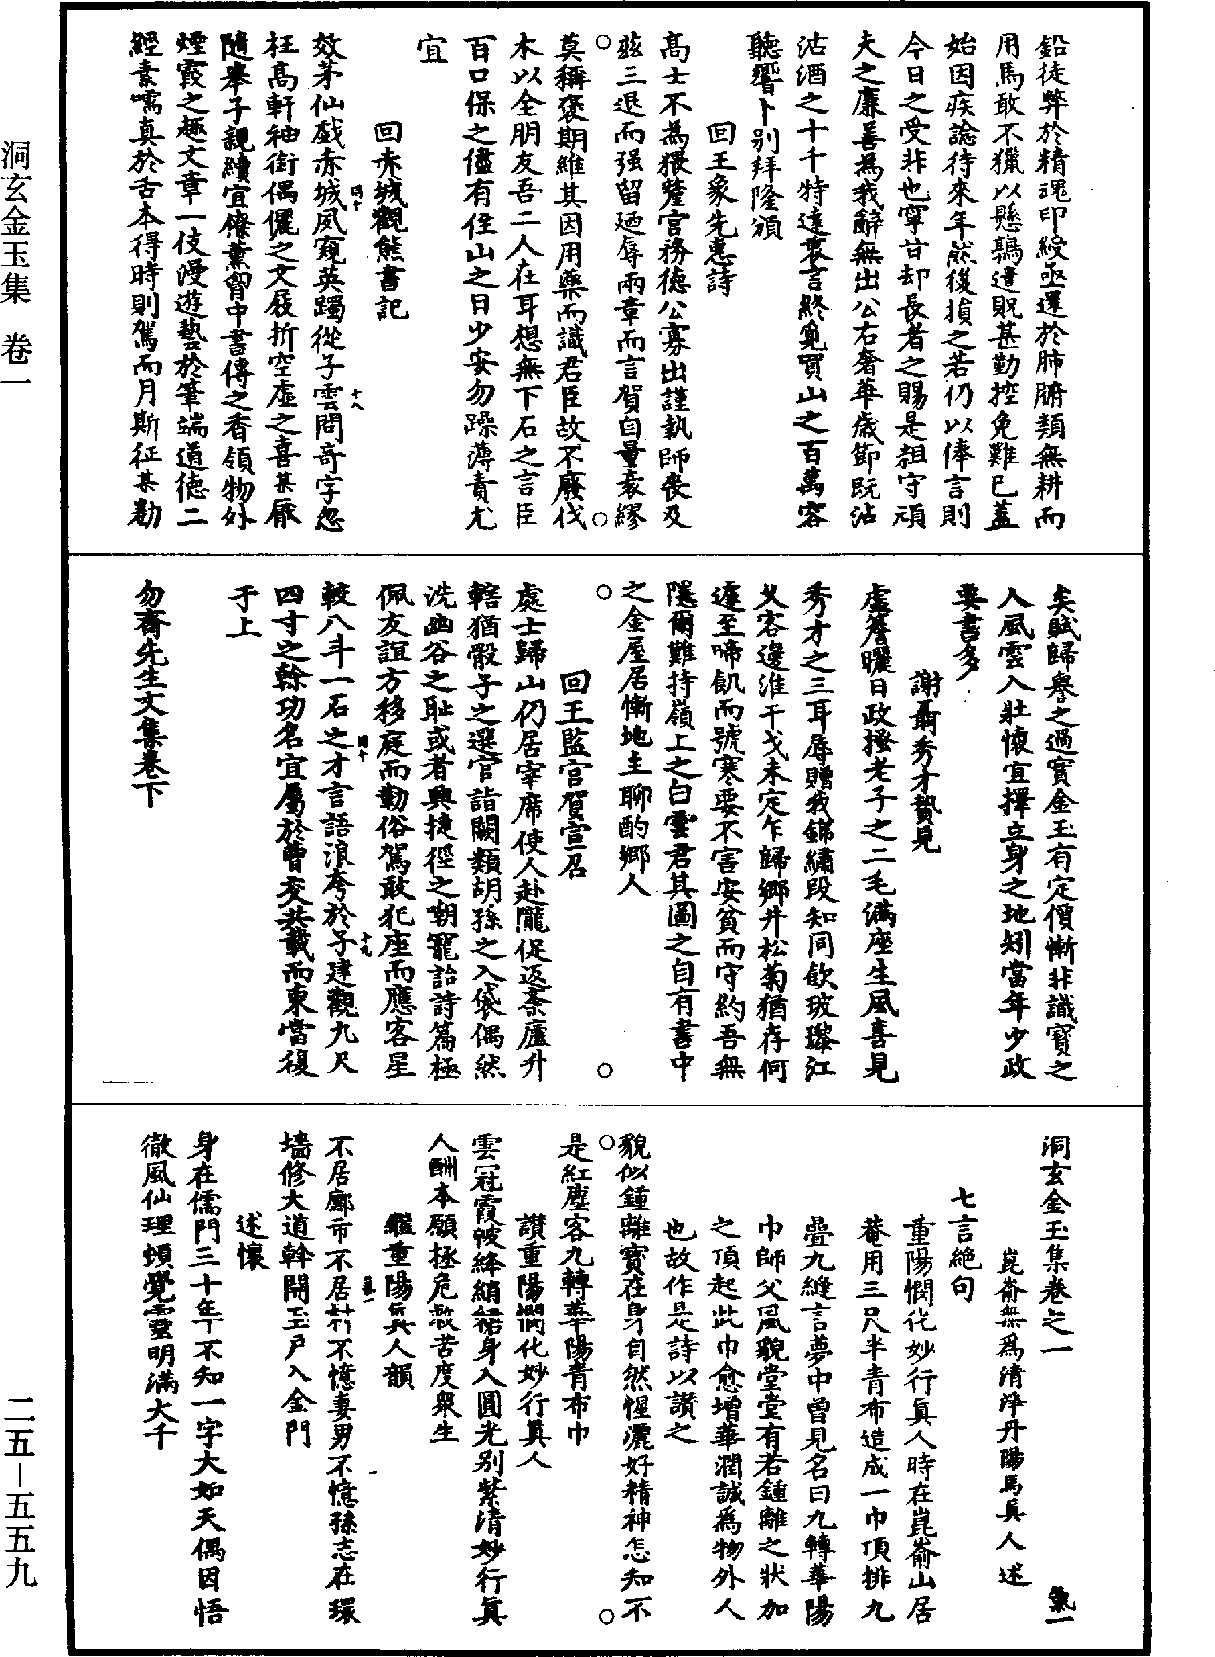 鉛徒弊於精魂印綬亟還於肺腑類無耕而
用馬敢不獵以懸鶉遣貺甚勤控免難已蓋
始因疾諗待來年然後損之若仍以俸言則
今日之受非也寧甘却長者之賜是粗守頑
夫之廉善為我辭無出公右奢華歲節既沾
沽酒之十千特達褒言終寬買山之百萬容
聽響卜別拜隆頒
回王象先惠詩
高士不為猥釐宮務德公寡出謹執師喪及
茲三退而强留廼辱兩章而言賀自量衰繆
莫稱褒期維其因用藥而識君臣故不廢伐
木以全朋友吾二人在耳想無下石之言臣
百口保之儘有住山之日少安勿躁薄責尤
宜
回赤城觀熊書記
效茅仙戲赤城夙窺英躅從子雲問奇字忽
枉高軒袖銜偶儷之文屐折空虛之喜某厰
隨舉子親續宜僚薰胷中書傳之香領物外
煙霞之趣文章一伎漫遊藝於筆端道德二
經素嚅真於舌本得時則駕而月斯征某勘
四十
十八
矣賦歸譽之過實金玉有定價慚非識寶之
人風雲入壯懷宜擇立身之地矧當年少政
要書多
謝聶秀才贄見
虛簷曬日政搔老子之二毛滿座生風喜見
秀才之三耳辱贈我錦繡段知同飲玻瓈江
乂客邊淮干戈未定乍歸鄉井松菊猶存何
遽至啼飢而號寒要不害安貧而守約吾無
隱爾難持嶺上之白雲君其圖之自有書中
之金屋居慚地主聊酌鄉人
回王監官賀宣召
處士歸山仍居宰席使人赴隴促返齋廬升
轄猶骰子之選官詣闕類胡孫之入袋偶然
洗幽谷之耻或者興捷徑之嘲寵詒詩篇極
佩友誼方移庭而勤俗駕敢犯座而應客星
較八斗一石之才言語浪夸於子建觀九尺
四寸之榦功名宜屬於曹交共載而東當復
于上
四十
十九
勿齋先生文集卷下
洞玄金玉集卷之一
崑崙無為清淨丹陽馬真人述
氣一
七言絕句
重陽憫化妙行真人時在崑崙山居
菴用三尺半青布造成一巾頂排九
疊九縫言夢中曾見名曰九轉華陽
巾師父風貌堂堂有若鍾離之狀加
之頂起此巾愈增華潤誠為物外人
也故作是詩以讚之
貌似鍾離寶在身自然惺灑好精神怎知不
是紅塵客九轉華陽青布巾
讚重陽憫化妙行真人
雲冠霞帔絳綃裙身入圓光别紫清妙行真
人酬本願拯危救苦度衆生
繼重陽真人韻
不居鄽市不居村不憶妻男不憶孫志在環
墻修大道斡開玉户入金門
述懷
身在儒門三十年不知一字大如天偶因悟
徹風仙理頓覺靈明滿大千
洞玄金玉集 卷一
二五—五五九